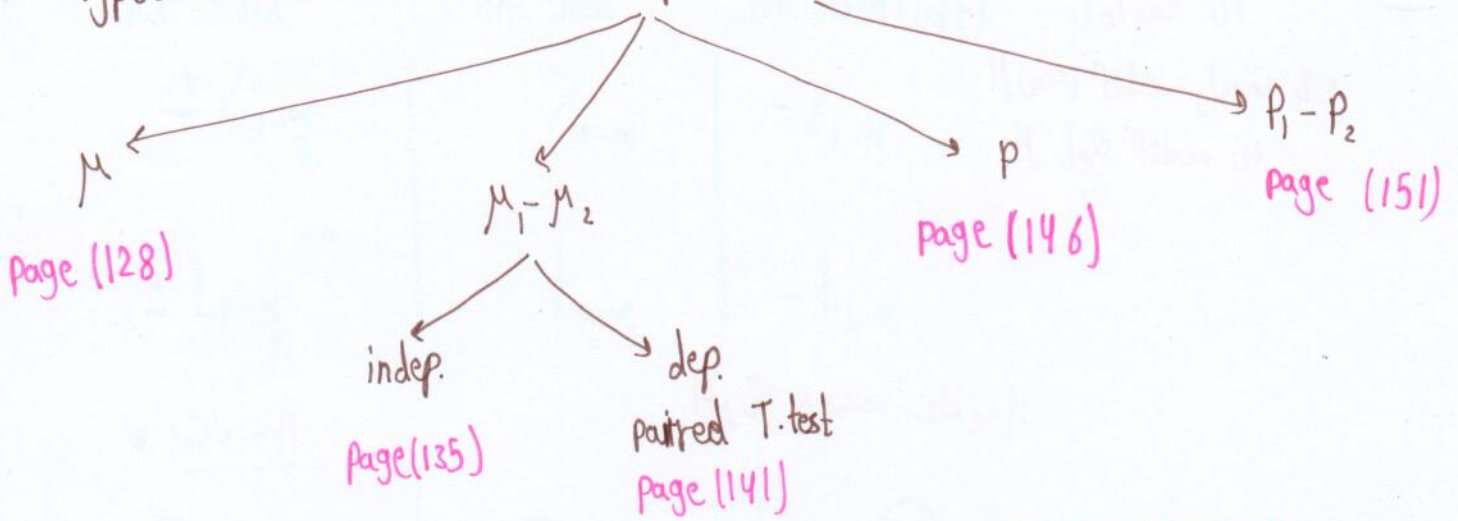 μ
Page (128)
μ₁ - μ₂
indep.
Page (135)
dep.
paired T. test
Page (141)
P
Page (146)
P₁ - P₂
Page (151)